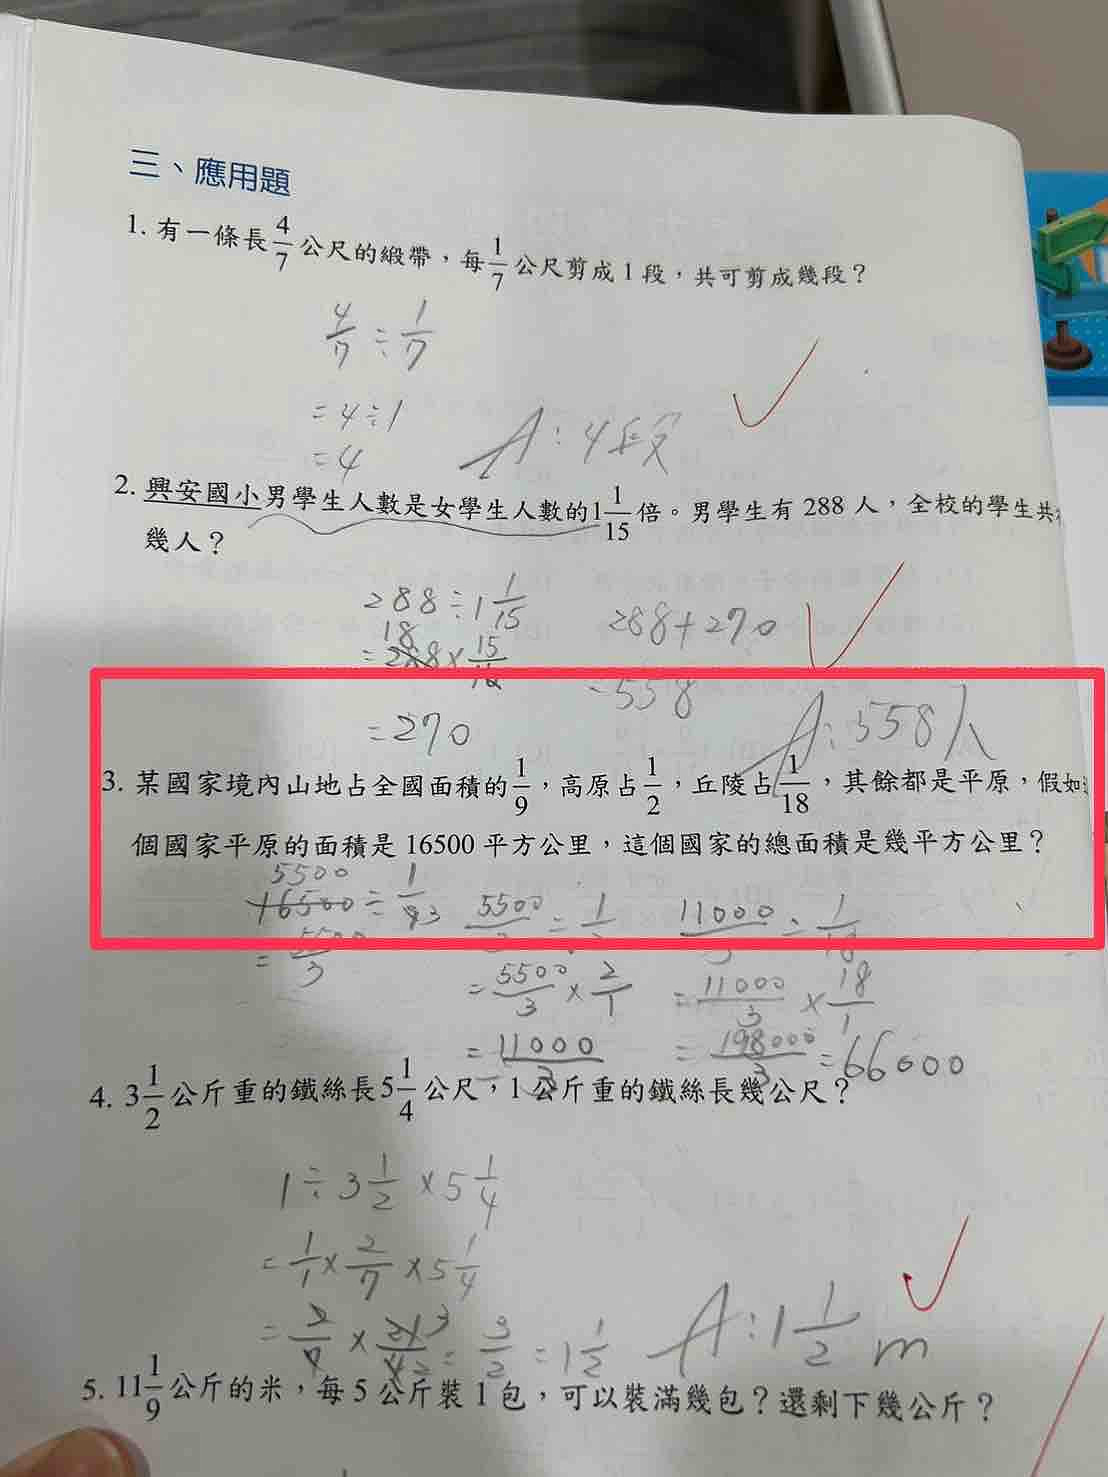 三、應用題
1. 有一條長4/7公尺的緞帶，每1/7公尺剪成1段，共可剪成幾段？
4/7 ÷ 1/7
= 4÷1
= 4
A: 4段
2. 興安國小男學生人數是女學生人數的1 1/15倍。男學生有288人，全校的學生共
幾人？
288 ÷ 1 1/15
18
= 288 × 15/16
= 270
288+270
= 558
A: 558人
3. 某國家境內山地占全國面積的1/9，高原占1/2，丘陵占1/18，其餘都是平原，假如
個國家平原的面積是16500平方公里，這個國家的總面積是幾平方公里？
5500
16500 ÷ 1/9 3
= 5500/3
5500/3 ÷ 1/2
= 5500/3 × 2/1
= 11000/3
11000/3 ÷ 1/18
= 11000/3 × 18/1
= 198000/3 = 66000
4. 3 1/2公斤重的鐵絲長5 1/4公尺，1公斤重的鐵絲長幾公尺？
1 ÷ 3 1/2 × 5 1/4
= 1/1 × 2/7 × 5 1/4
= 2/7 × 21/4 = 3/2 = 1 1/2
A: 1 1/2 m
5. 11 1/9公斤的米，每5公斤裝1包，可以裝滿幾包？還剩下幾公斤？